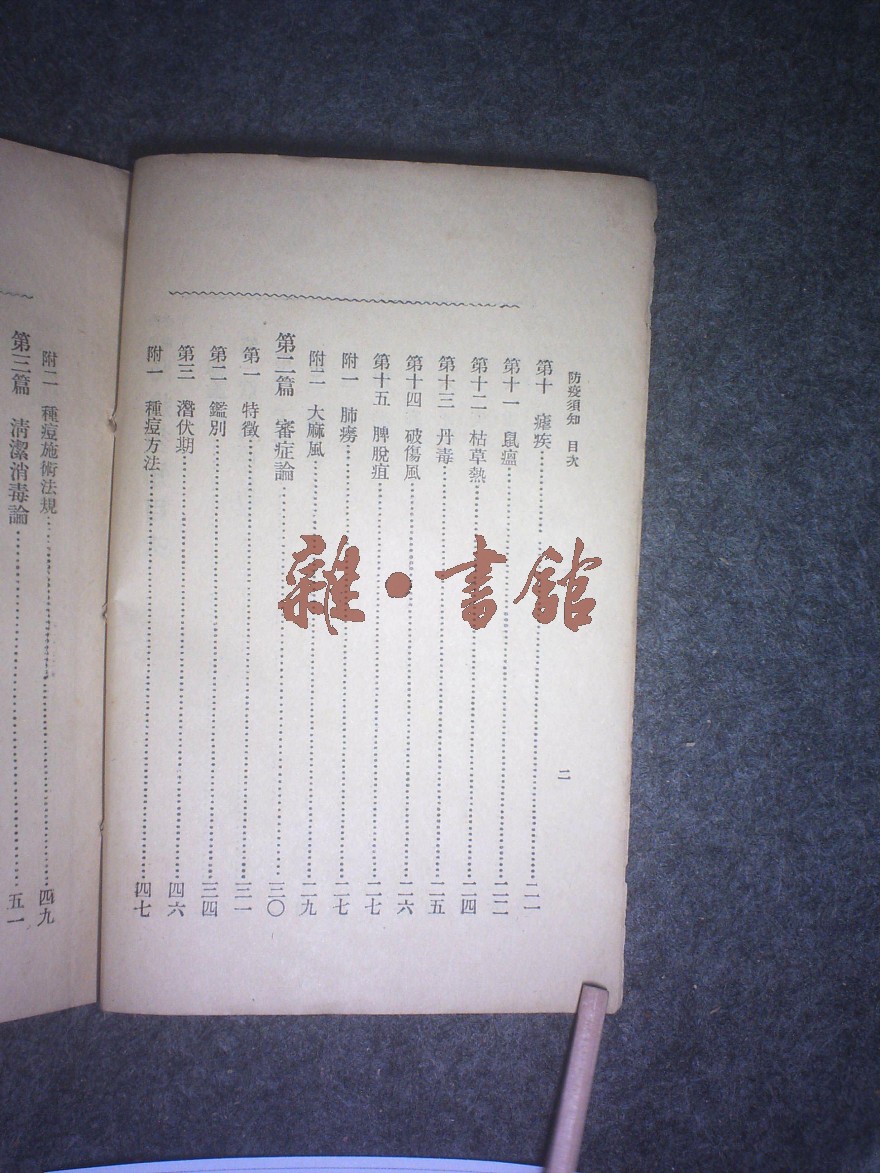 防疫須知 目次
二
第十 瘧疾 二一
第十一 鼠瘟 二二
第十二 枯草熱 二四
第十三 丹毒 二五
第十四 破傷風 二六
第十五 脾脫疽 二七
附一 肺癆 二七
附二 大麻風 二九
第二篇 審症論 三〇
第一 特徵 三一
第二 鑑別 三四
第三 潛伏期 四六
附一 種痘方法 四七
附二 種痘施術法規 四九
第三篇 清潔消毒論 五一
雜·書館